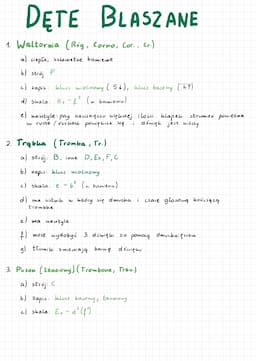 DĘTE BLASZANE
1. Waltornia (Róg, Corno, Cor., Cr.)
a) ciepła, szlachetna barwa
b) strój F
c) zapis: klucz wiolinowy (5↓), klucz basowy (↑4)
d) skala: B₁ - f² (w brzmieniu)
e) wentyle: przy naciśnięciu większej ilości klapek strumień powietrza
w rurze / rurkach powiększa się i dźwięk jest niższy
2. Trąbka (Tromba, Tr.)
a) strój: B, inne D, Es, F, C
b) zapis: klucz wiolinowy
c) skala: e - b² (w brzmieniu)
d) ma ustnik w który się dmucha i czarę głosową kończącą
trąbkę
e) ma wentyle
f) może wydobyć 3 dźwięki za pomocą
g) tłumik zmieniają barwę dźwięku
3. Puzon (tenorowy) (Trombone, Trbn.)
a) strój: C
b) zapis: klucz basowy, tenorowy
c) skala: E₁ - d²(f²)